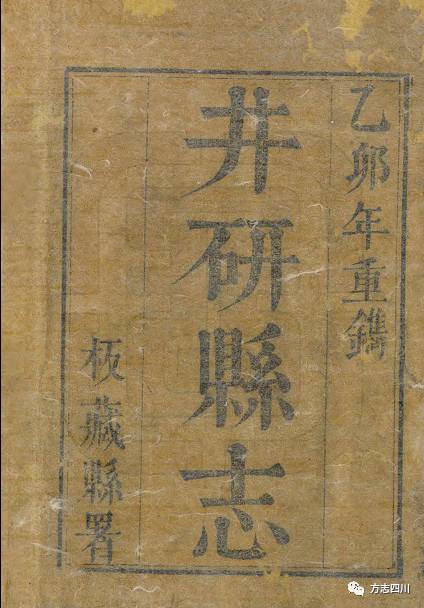 乙卯年重鐫
井研縣志
板藏縣署
方志四川